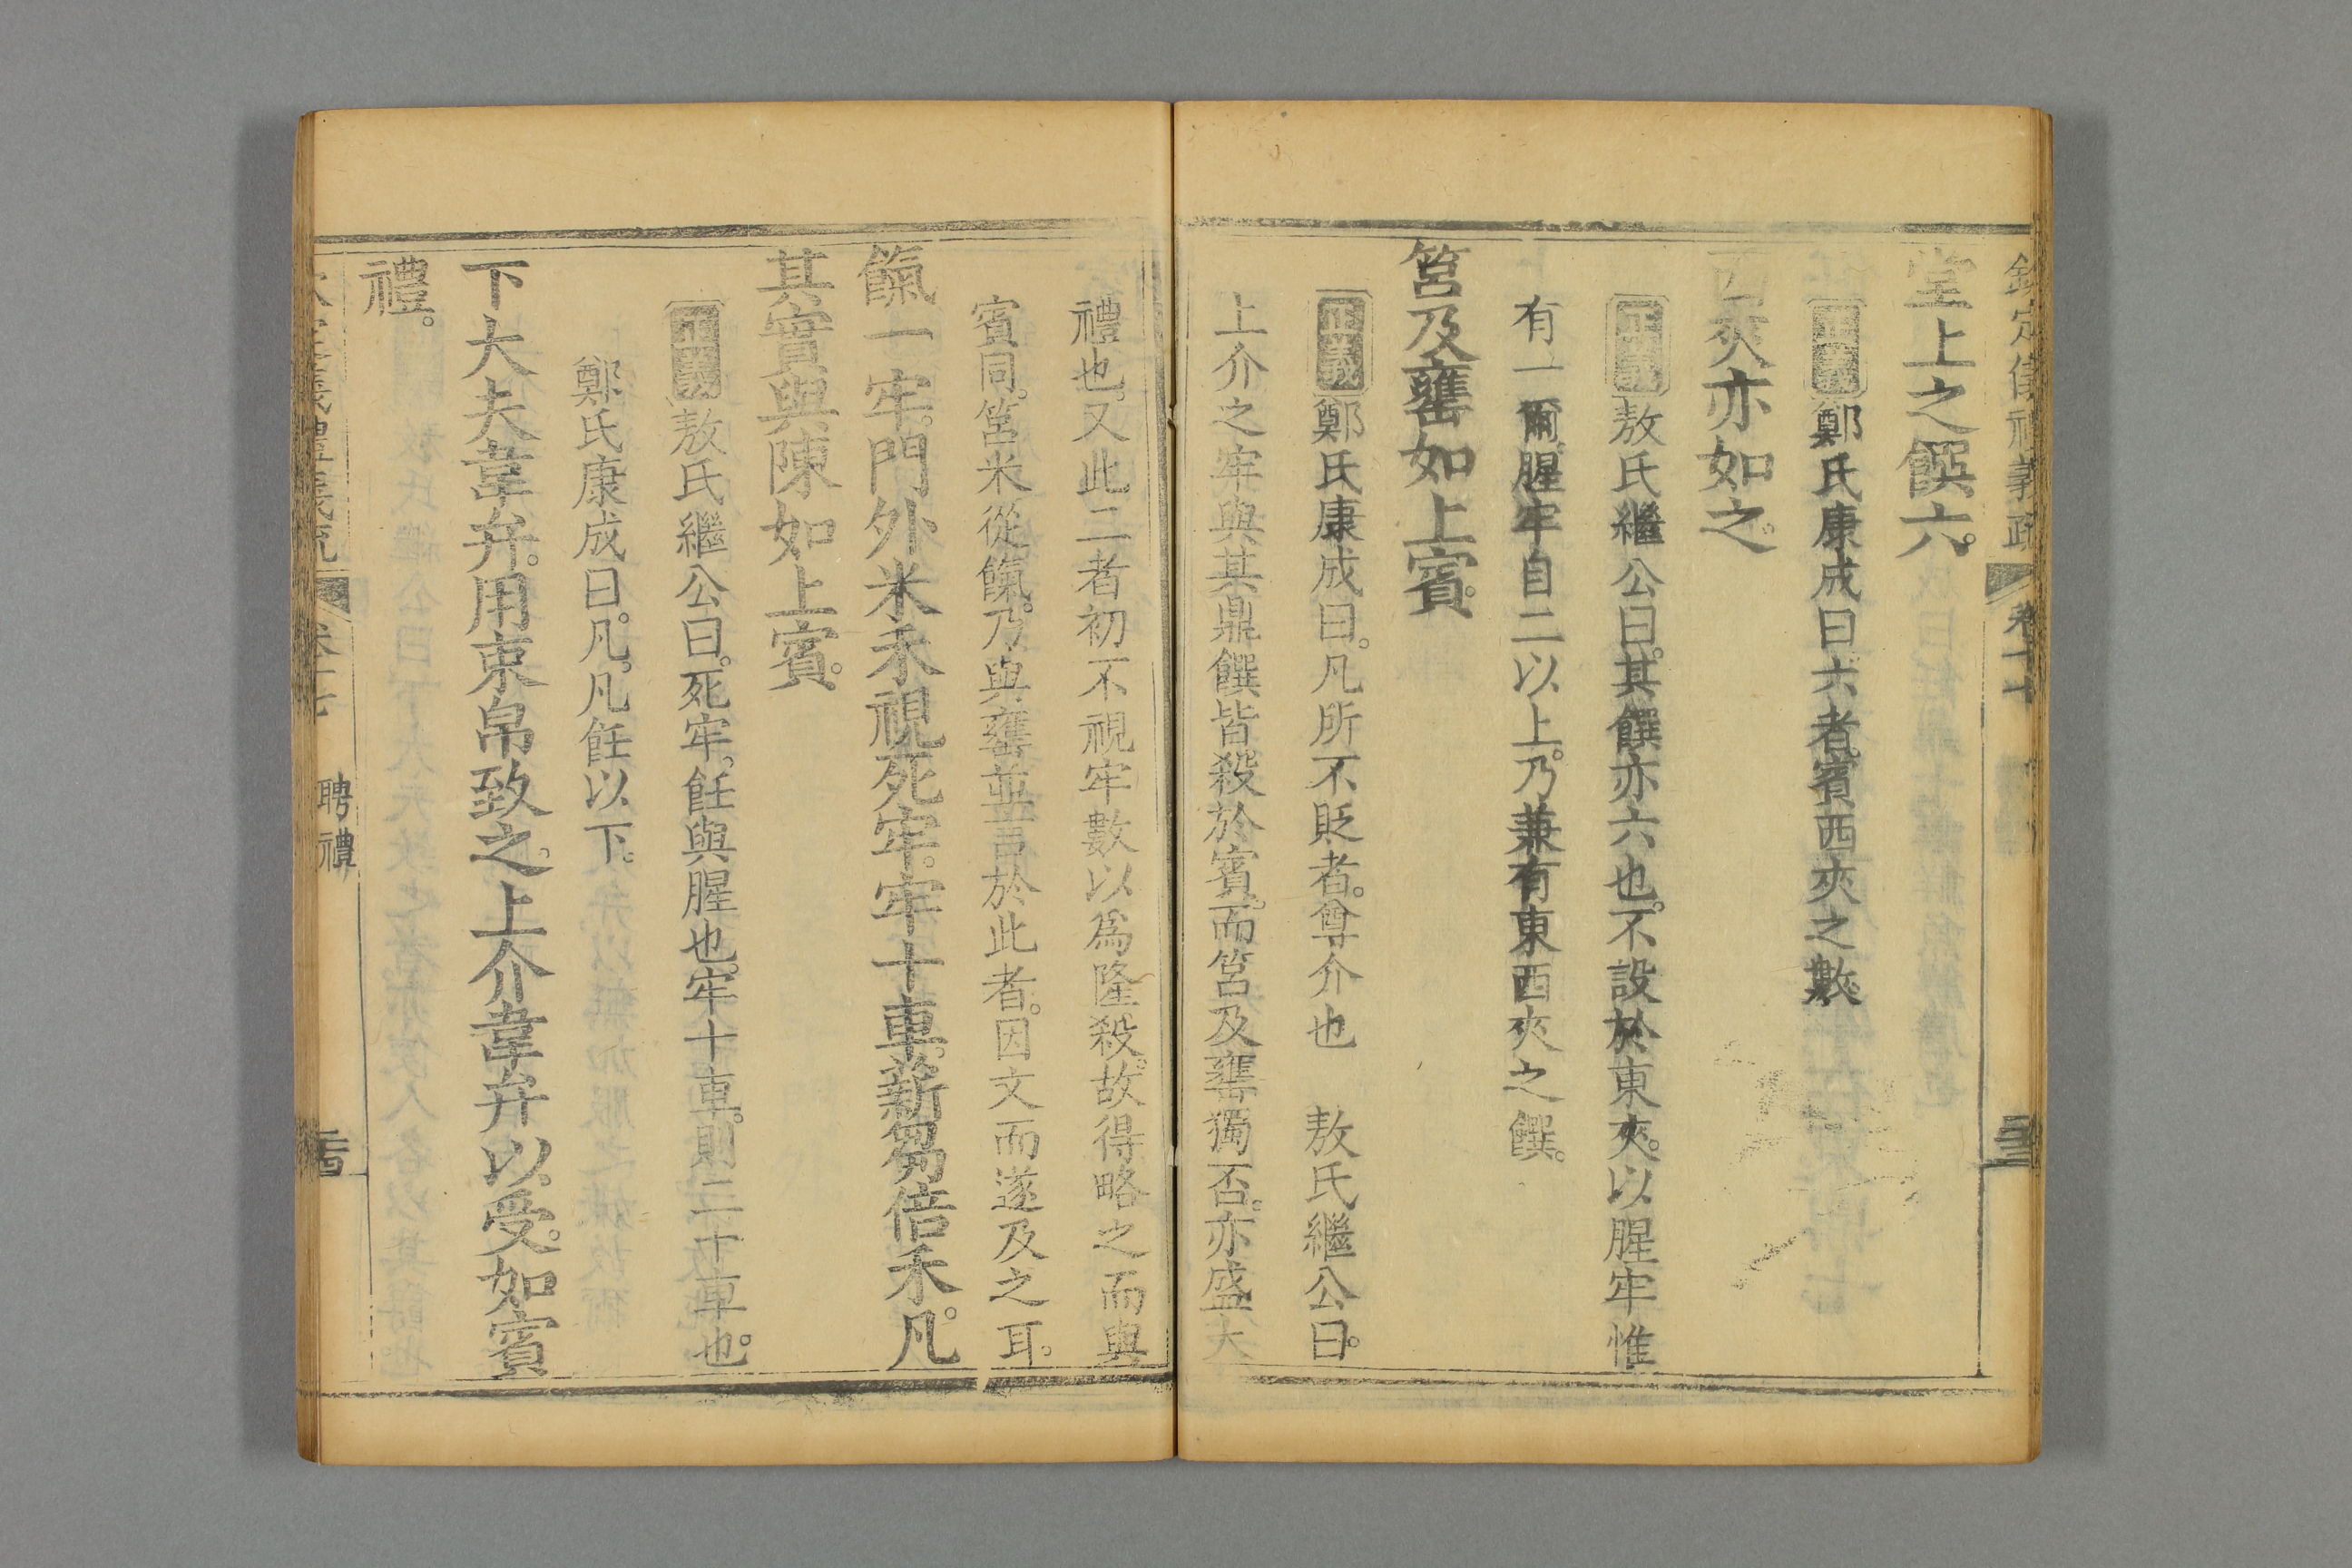 欽定儀禮義疏 卷十七
堂上之饌六。
正義鄭氏康成曰六者。賓西夾之數。
西夾亦如之。
正義敖氏繼公曰。其饌亦六也。不設於東夾。以腥牢惟
有一爾。腥牢自二以上。乃兼有東西夾之饌。
筥及罋如上賓。
正義鄭氏康成曰。凡所不貶者。尊介也 敖氏繼公曰。
上介之牢與其鼎饌皆殺於賓。而筥及罋獨否。亦盛大
禮也。又此二者初不視牢數以爲隆殺。故得略之而與
賓同。筥米從餼。乃與罋並言於此者。因文而遂及之耳。
餼一牢。門外米禾視死牢。牢十車。薪芻倍禾。凡
其實與陳如上賓。
正義敖氏繼公曰。死牢。飪與腥也。牢十車。則二十車也。
鄭氏康成曰。凡。凡飪以下。
下大夫韋弁。用束帛致之。上介韋弁以受。如賓
禮。
卷十七 聘禮